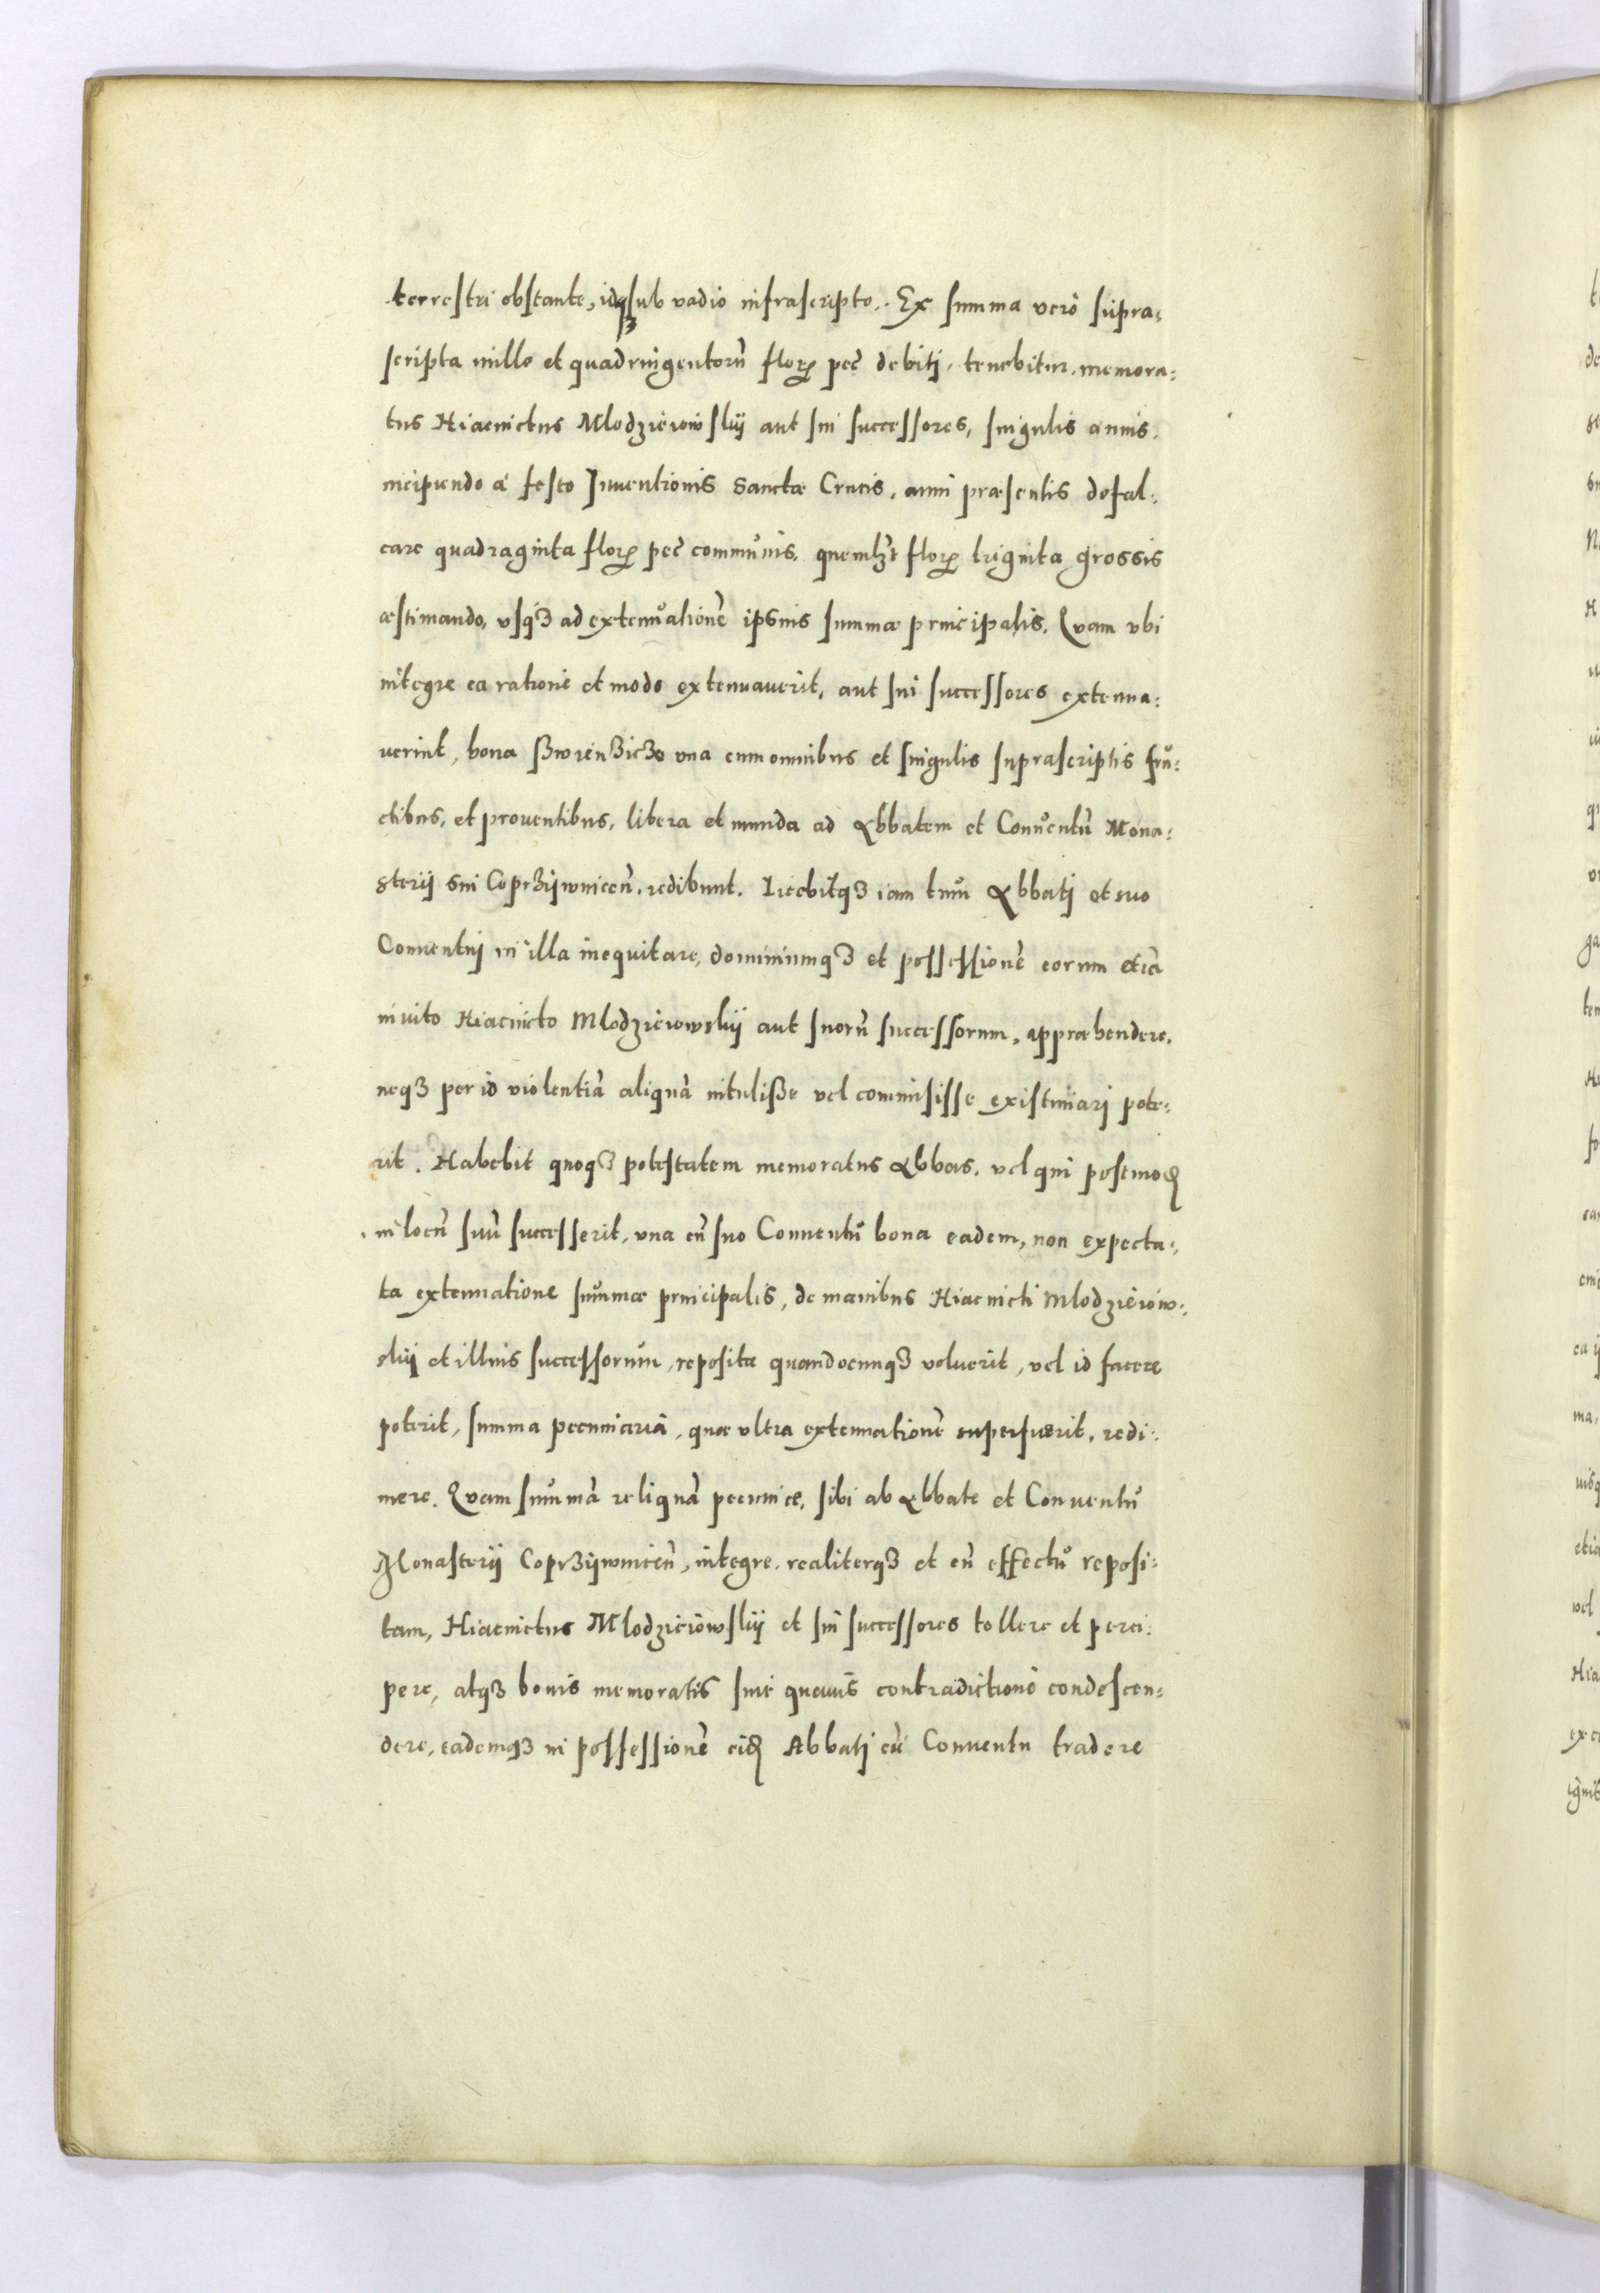 terrestri obstante, idq₃ sub vadio infrascripto. Ex summa vero supra⸗
scripta mille et quadringentorũ floꝝ pec̃ debitj, tenebitur memora⸗
tus Hiacinctus Mlodzieiowskij aut sui successores, singulis annis,
incipiendo á festo Inuentionis Sanctæ Crucis, anni præsentis defal⸗
care quadraginta floꝝ pec̃ commůnis, quemlꝫt floꝝ triginta grossis
æstimando, vsqꝫ ad extenůationẽ ipsius summæ principalis. Quam vbi
integre ea ratione et modo extenuauerit, aut sui successores extenua⸗
uerint, bona Swrenʒicze vna cum omnibus et singulis suprascriptis frů⸗
ctibus, et prouentibus, libera et munda ad Abbatem et Conůentũ Mona⸗
sterij sui Coprʒijwnicen̄. redibunt. Licebitqꝫ iam tum̃ Abbatj et suo
Conuentuj in illa inequitare, dominiumqꝫ et possessionẽ eorum etiã
inuito Hiacincto Mlodzieiowskij aut suorũ successorum, appræhendere,
neqꝫ per id violentiã aliquã intulisse vel commisisse existimarj pote⸗
rit. Habebit quoqꝫ potestatem memoratus Abbas, vel qui postmođ
in locũ suũ successerit, vna cũ suo Conuentů bona eadem, non expecta⸗
ta extenuatione summæ principalis, de manibus Hiacincti Mlodzieiow⸗
skij et illius successorum, reposita quandocunqꝫ voluerit, vel id facere
poterit, summa pecuniaria, quæ vltra extenuationẽ superfuerit, redi⸗
mere. Quam summã reliquã pecuniæ, sibi ab Abbate et Conuentů
Monasterij Coprʒijwnicen̄, integre, realiterqꝫ et cũ effectů reposi⸗
tam, Hiacinctus Mlodzieiowskij et sui successores tollere et perci⸗
pere, atqꝫ bonis memoratis sine quauis contradictione condescen⸗
dere, eademqꝫ in possessionẽ eiđ Abbatj cũ Conuentu tradere